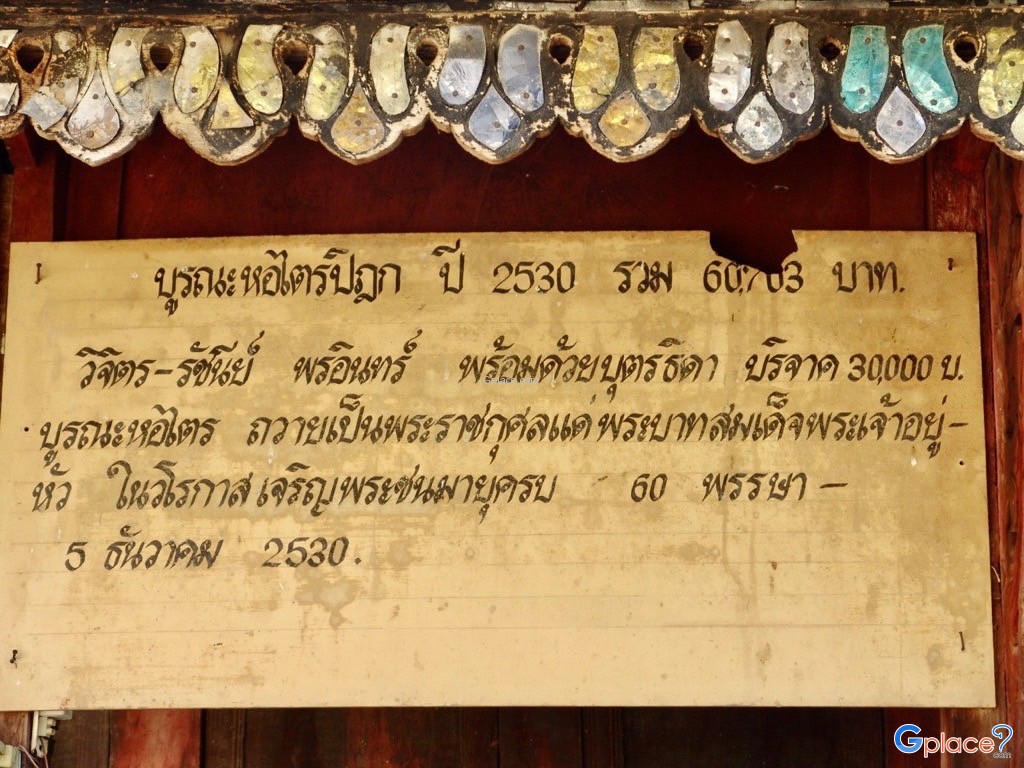 บูรณะหอไตรปิฎก ปี 2530 รวม 60,703 บาท.
วิจิตร-รัชนีย์ พรอินทร์ พร้อมด้วยบุตรธิดา บริจาค 30,000 บ.
บูรณะหอไตร ถวายเป็นพระราชกุศลแด่พระบาทสมเด็จพระเจ้าอยู่-
หัว ในวโรกาสเจริญพระชนมายุครบ 60 พรรษา -
5 ธันวาคม 2530.
Gplace.com